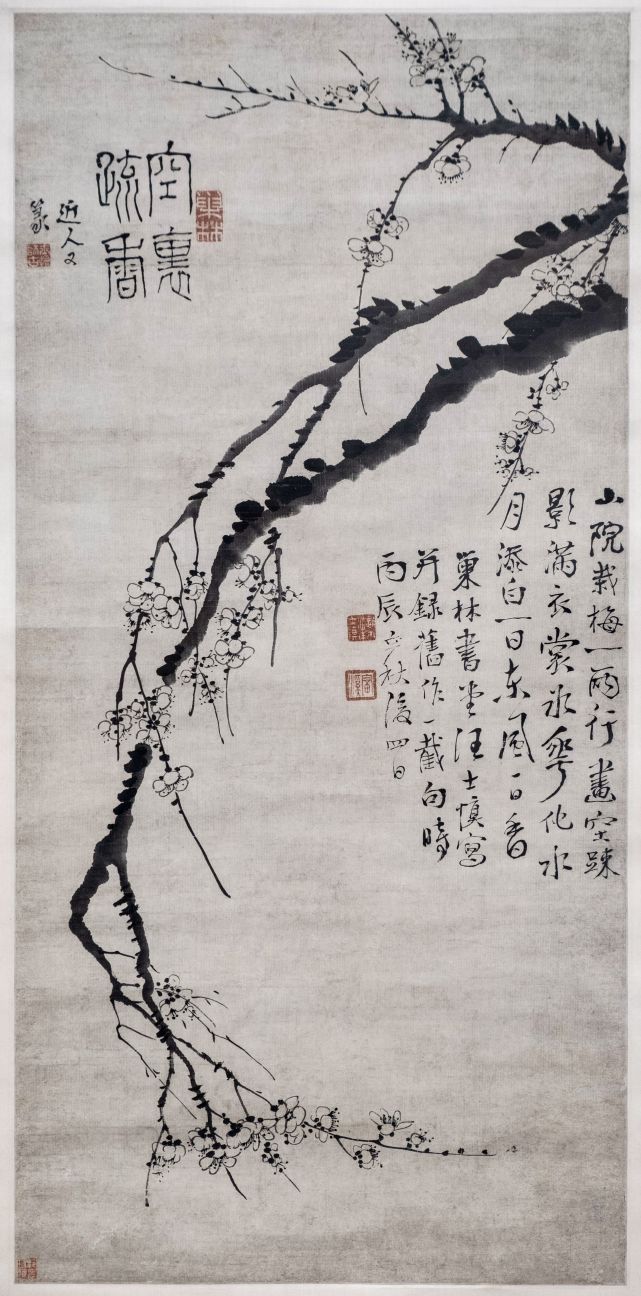 空裏
疏香
近人又
篆
巢林
小院栽梅一兩行畫空踈
影滿衣裳冰華化水
月添白一日東風一日香
巢林書堂汪士慎寫
并録舊作一截句時
丙辰立秋後四日